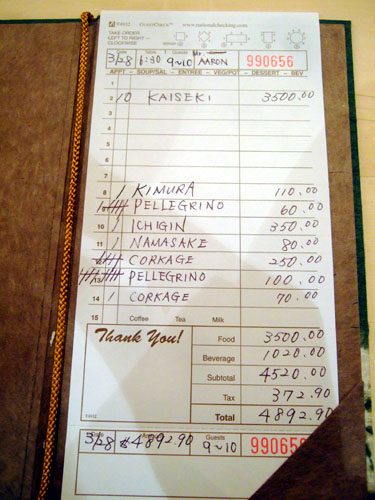 GUESTCHECK™ www.nationalchecking.com
TAKE ORDER
LEFT TO RIGHT—
CLOCKWISE
Date Table Guests
3/28 6:30 9~10 Mr. AARON 990656
APPT - SOUP/SAL - ENTREE - VEG/POT - DESSERT - BEV
1
2 10 KAISEKI 3500.00
8 1 KIMURA 110.00
PELLEGRINO 60.00
10 1 ICHIGIN 350.00
11 1 NAMASAKE 80.00
CORKAGE 250.00
PELLEGRINO 100.00
14 1 CORKAGE 70.00
15 Coffee Tea Milk
Thank You!
Food 3500.00
Beverage 1020.00
Subtotal 4520.00
Tax 372.90
Total 4892.90
Date Guests
3/28 $4892.90 9~10 990656